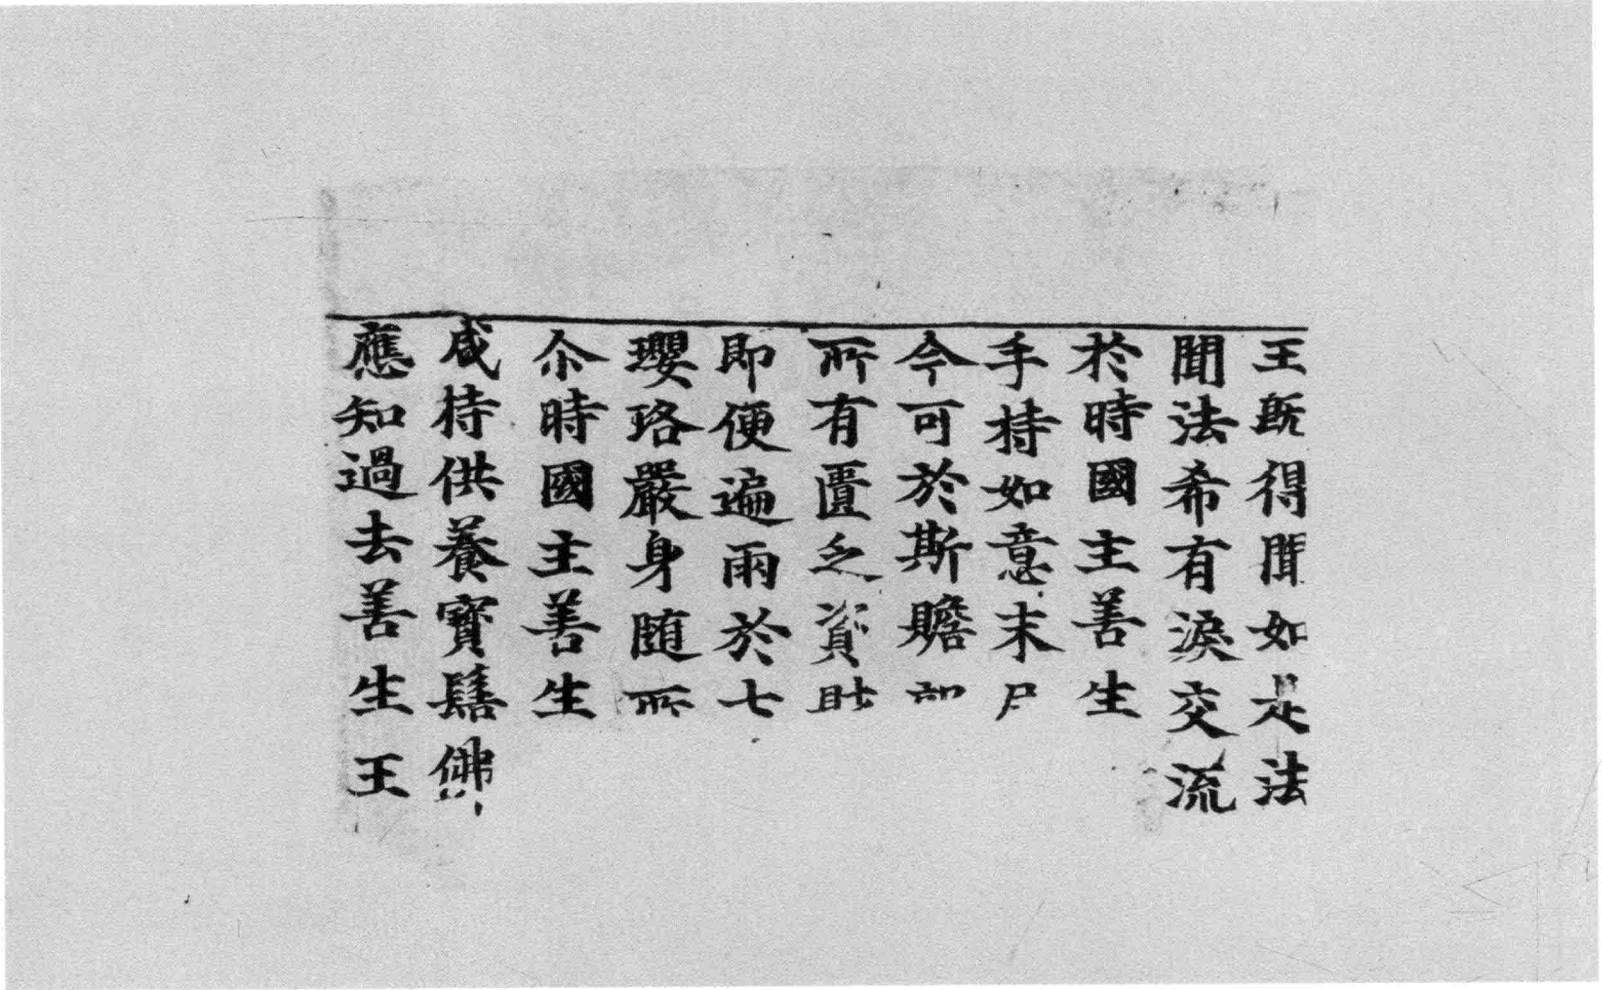 王既得聞如是法
聞法希有淚交流
於時國主善生
手持如意末尸
今可於斯贍部
所有匱乏資財
即便遍雨於七
瓔珞嚴身随所
尒時國主善生
咸持供養寳髻佛
應知過去善生王